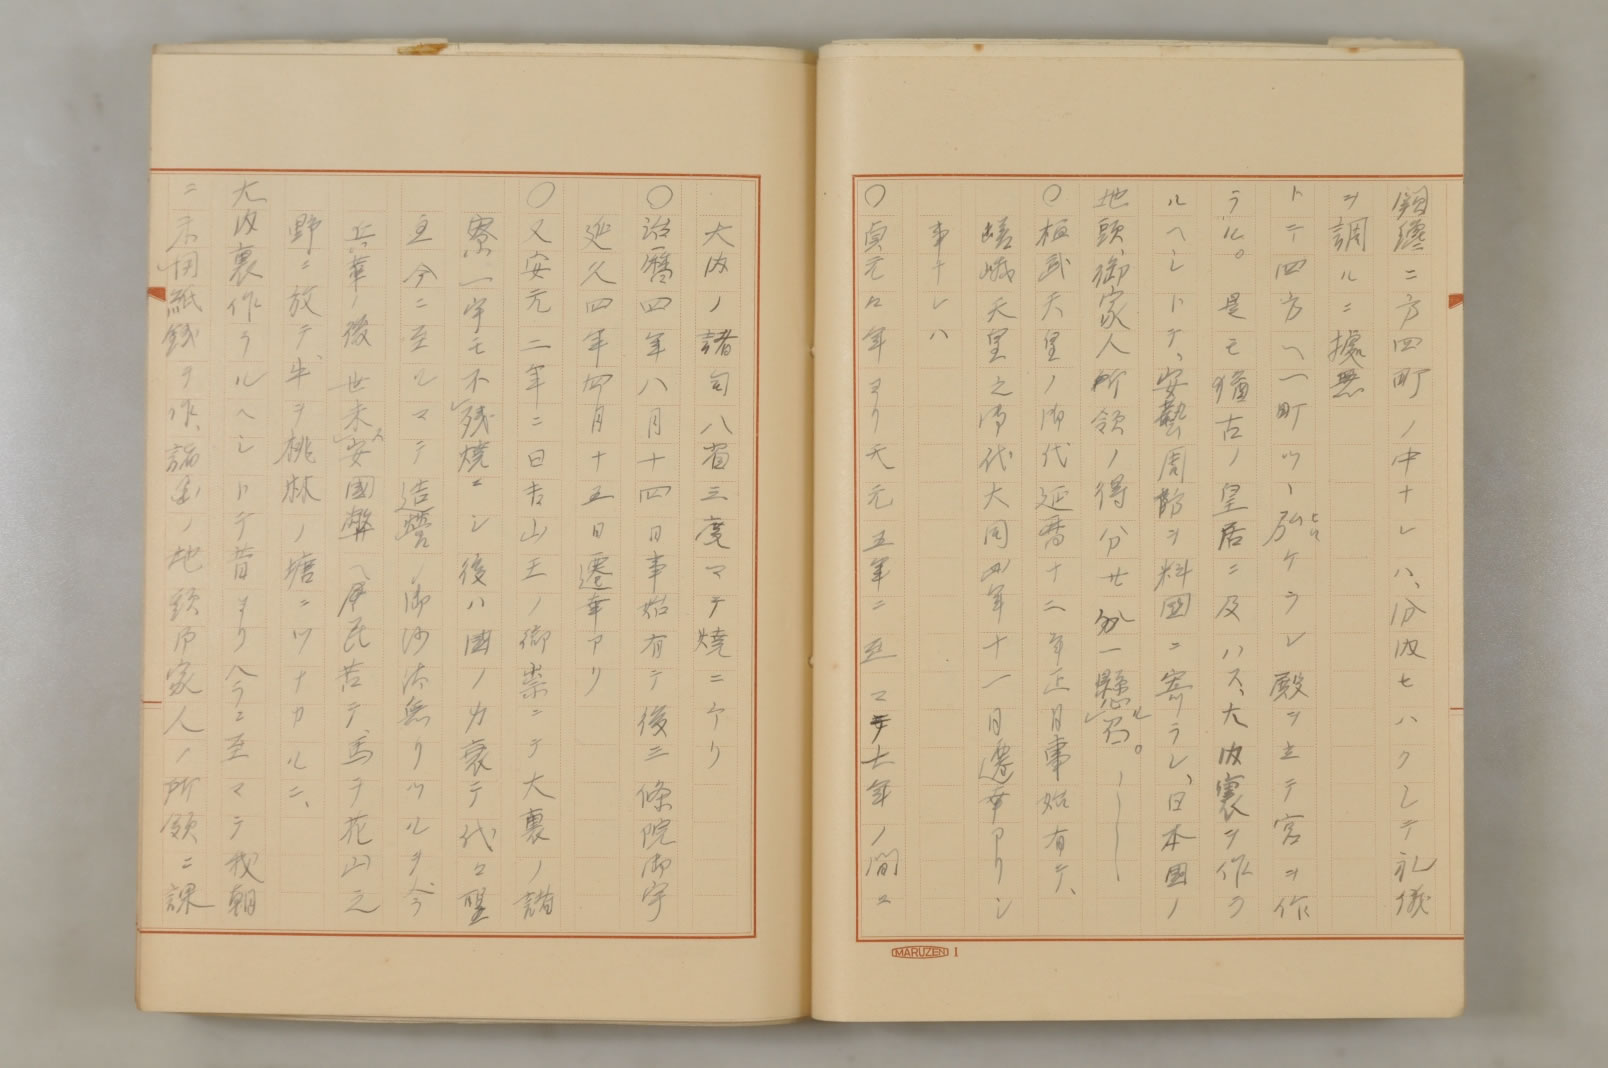 纔ニ方四町ノ中ナレハ、分内セハクシテ礼儀
ヲ調ルニ據無
トテ四方ヘ一町ツヽ弘ケラレ殿ヲ立テ宮ヲ作
ラル。是モ猶古ノ皇居ニ及ハス、大内裏ヲ作ラ
ルヘシトテ、安藝周防ヲ料國ニ寄ラレ、日本国ノ
地頭、御家人所領ノ得分廿分一懸召ル。
〇桓武天皇ノ御代延暦十二年正月事始有テ、
嵯峨天皇之御代大同四年十一月遷幸アリシ
事ナレハ
〇貞元々年ヨリ天元五年ニ至マテ七年ノ間ニ
MARUZEN 1
大内ノ諸司八省三度マテ焼ニケリ
〇治暦四年八月十四日事始有テ後三條院御宇
延久四年四月十五日遷幸アリ
〇又安元二年ニ日吉山王ノ御祟ニテ大裏ノ諸
寮一宇モ不残焼ニシ後ハ國ノ力衰テ代々聖
主今ニ至ルマテ造營ノ御沙汰無リツルヲ今
兵革ノ後世未安國弊ヘ民苦テ、馬ヲ花山之
野ニ放テ牛ヲ桃林ノ塘ニツナカルニ、
大内裏作ラルヘシトテ昔ヨリ今ニ至マテ我朝
ニ不用紙銭ヲ作、諸國ノ地頭御家人ノ所領ニ課